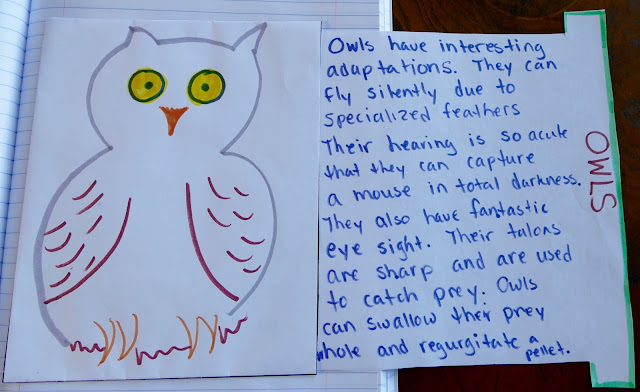 Owls have interesting
adaptations. They can
fly silently due to
specialized feathers
Their hearing is so acute
that they can capture
a mouse in total darkness.
They also have fantastic
eye sight. Their talons
are sharp and are used
to catch prey. Owls
can swallow their prey
whole and regurgitate a
pellet.
OWLS